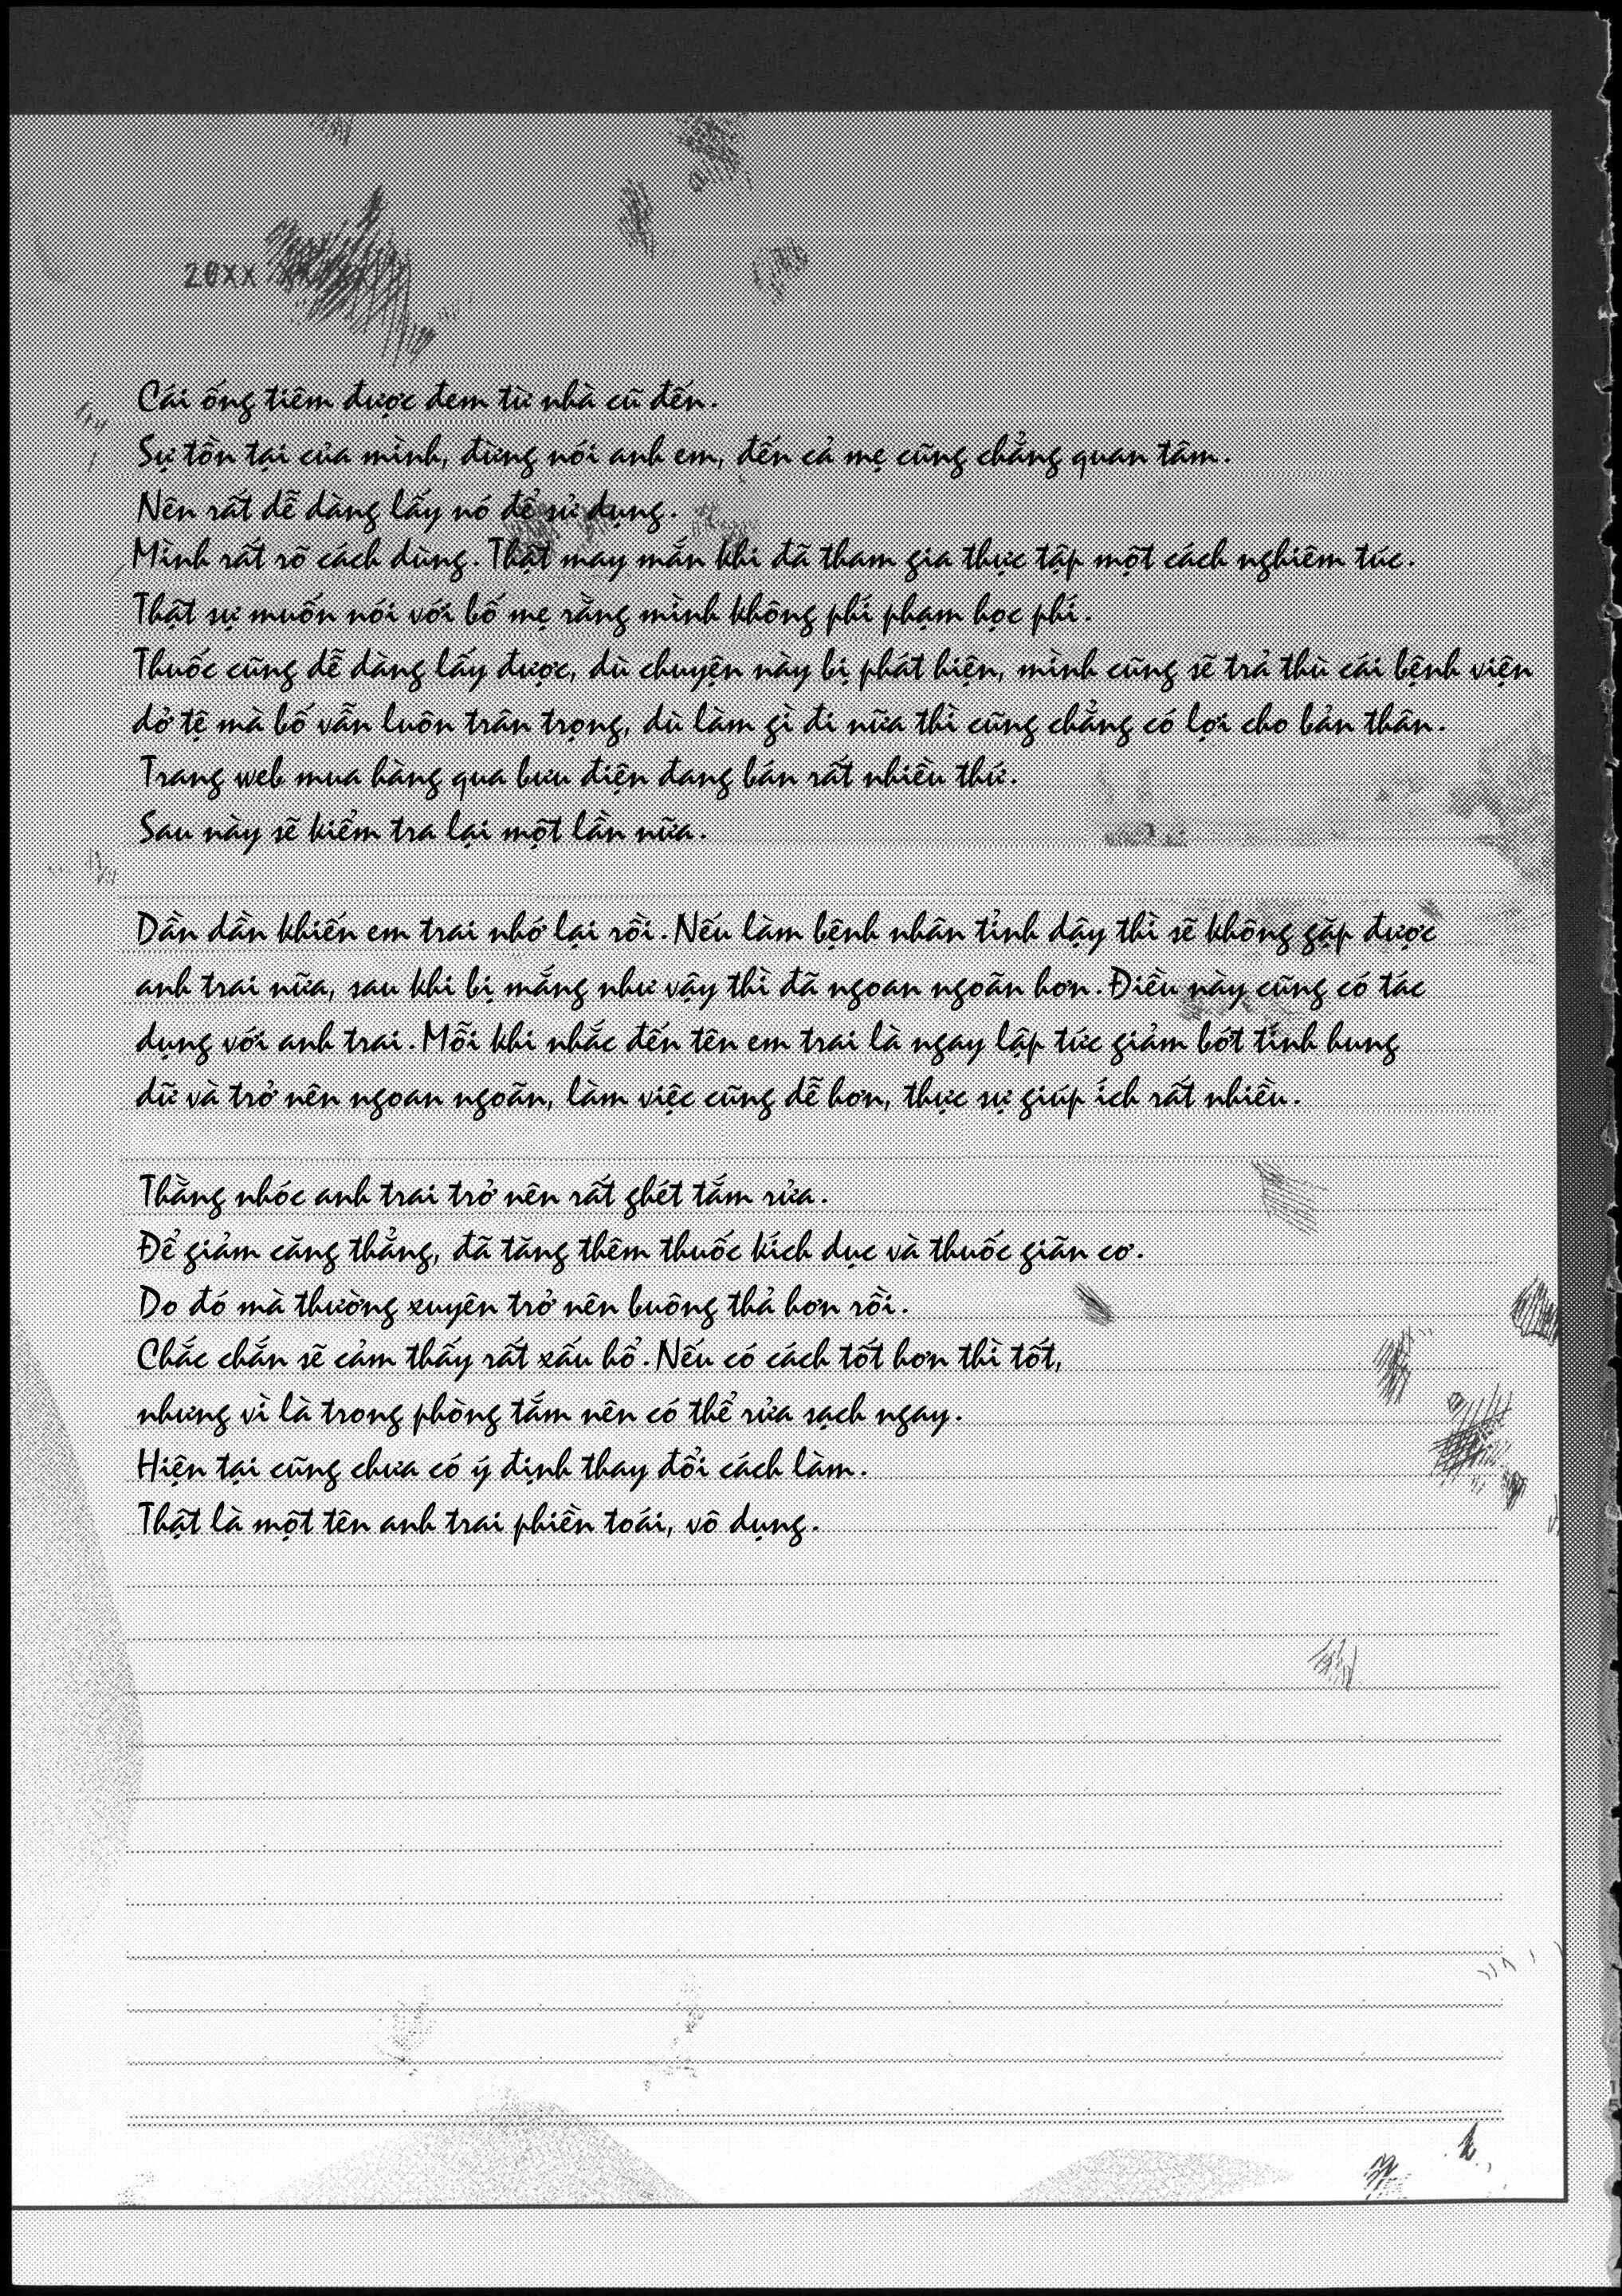 20XX
Cái ống tiêm được đem từ nhà cũ đến.
Sự tồn tại của mình, đừng nói anh em, đến cả mẹ cũng chẳng quan tâm.
Nên rất dễ dàng lấy nó để sử dụng.
Mình rất rõ cách dùng. Thật may mắn khi đã tham gia thực tập một cách nghiêm túc.
Thật sự muốn nói với bố mẹ rằng mình không phí phạm học phí.
Thuốc cũng dễ dàng lấy được, dù chuyện này bị phát hiện, mình cũng sẽ trả thù cái bệnh viện
dở tệ mà bố vẫn luôn trân trọng, dù làm gì đi nữa thì cũng chẳng có lợi cho bản thân.
Trang web mua hàng qua bưu điện đang bán rất nhiều thứ.
Sau này sẽ kiểm tra lại một lần nữa.
Dần dần khiến em trai nhớ lại rồi. Nếu làm bệnh nhân tỉnh dậy thì sẽ không gặp được
anh trai nữa, sau khi bị mắng như vậy thì đã ngoan ngoãn hơn. Điều này cũng có tác
dụng với anh trai. Mỗi khi nhắc đến tên em trai là ngay lập tức giảm bớt tính hung
dữ và trở nên ngoan ngoãn, làm việc cũng dễ hơn, thực sự giúp ích rất nhiều.
Thằng nhóc anh trai trở nên rất ghét tắm rửa.
Để giảm căng thẳng, đã tăng thêm thuốc kích dục và thuốc giãn cơ.
Do đó mà thường xuyên trở nên buông thả hơn rồi.
Chắc chắn sẽ cảm thấy rất xấu hổ. Nếu có cách tốt hơn thì tốt,
nhưng vì là trong phòng tắm nên có thể rửa sạch ngay.
Hiện tại cũng chưa có ý định thay đổi cách làm.
Thật là một tên anh trai phiền toái, vô dụng.